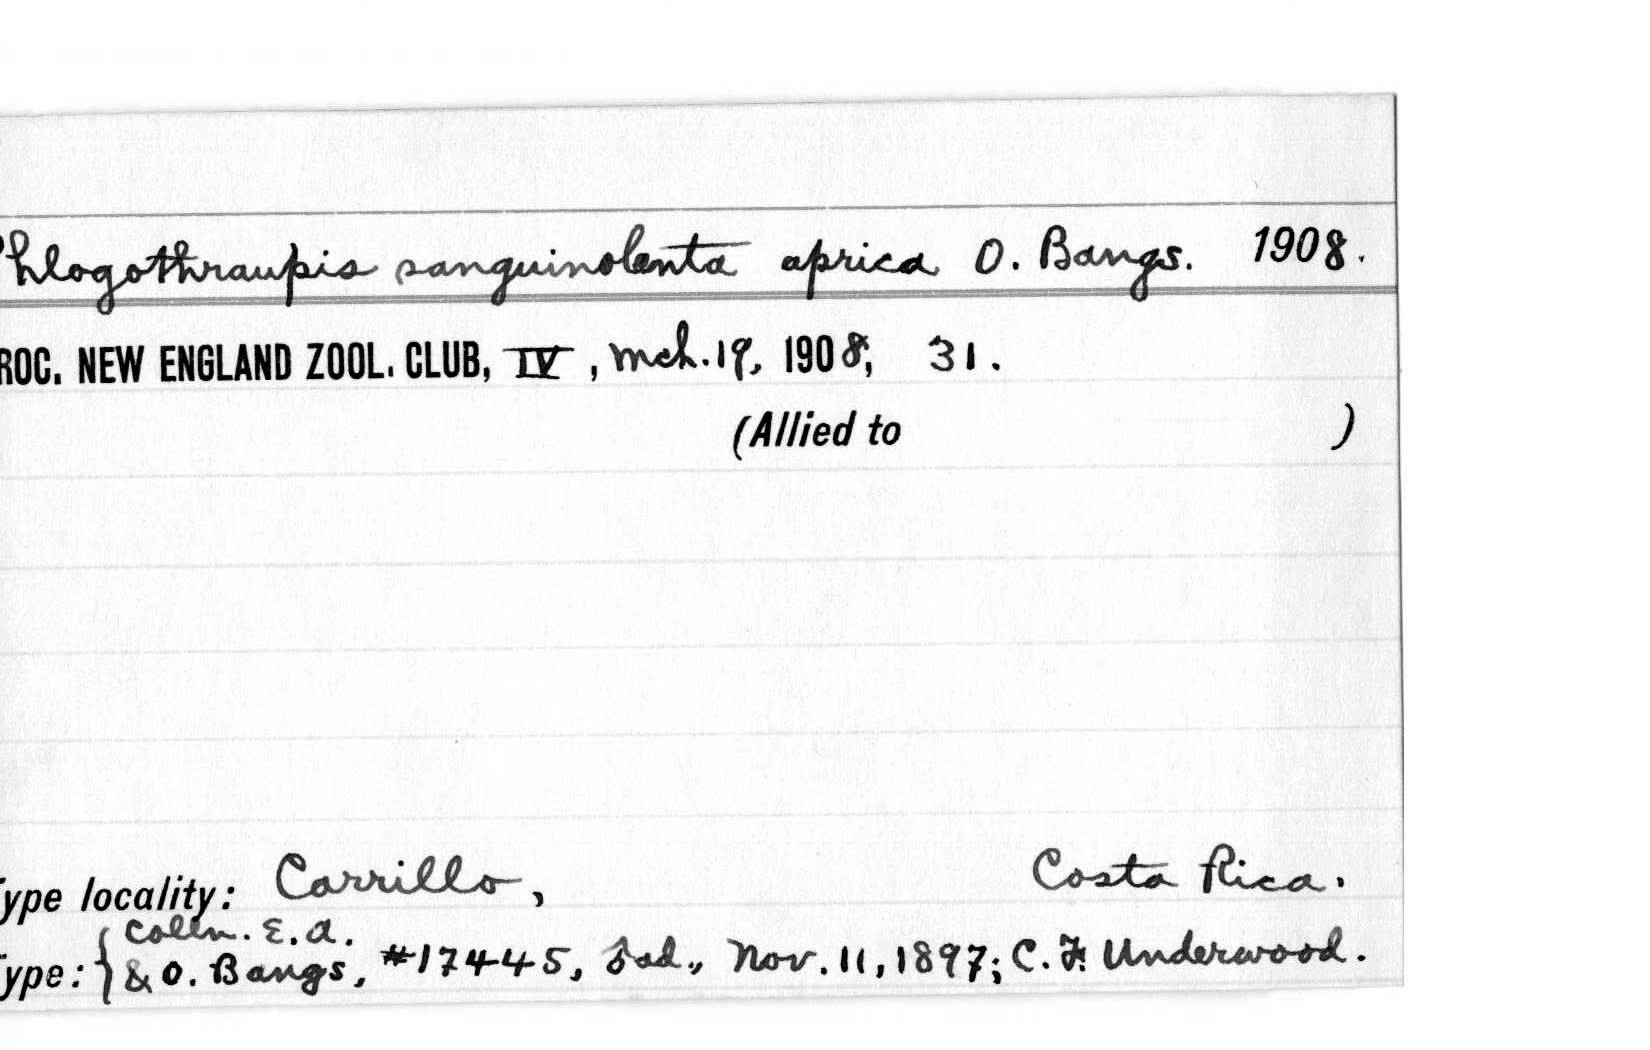 Phlogothraupis sanguinolenta aprica O. Bangs. 1908.
ROC. NEW ENGLAND ZOOL. CLUB, IV, Mch. 19, 1908, 31.
(Allied to )
Type locality: Carrillo, Costa Rica.
Colln. E.A.
Type: & O. Bangs, #17445, ♂ad., Nov. 11, 1897; C. F. Underwood.